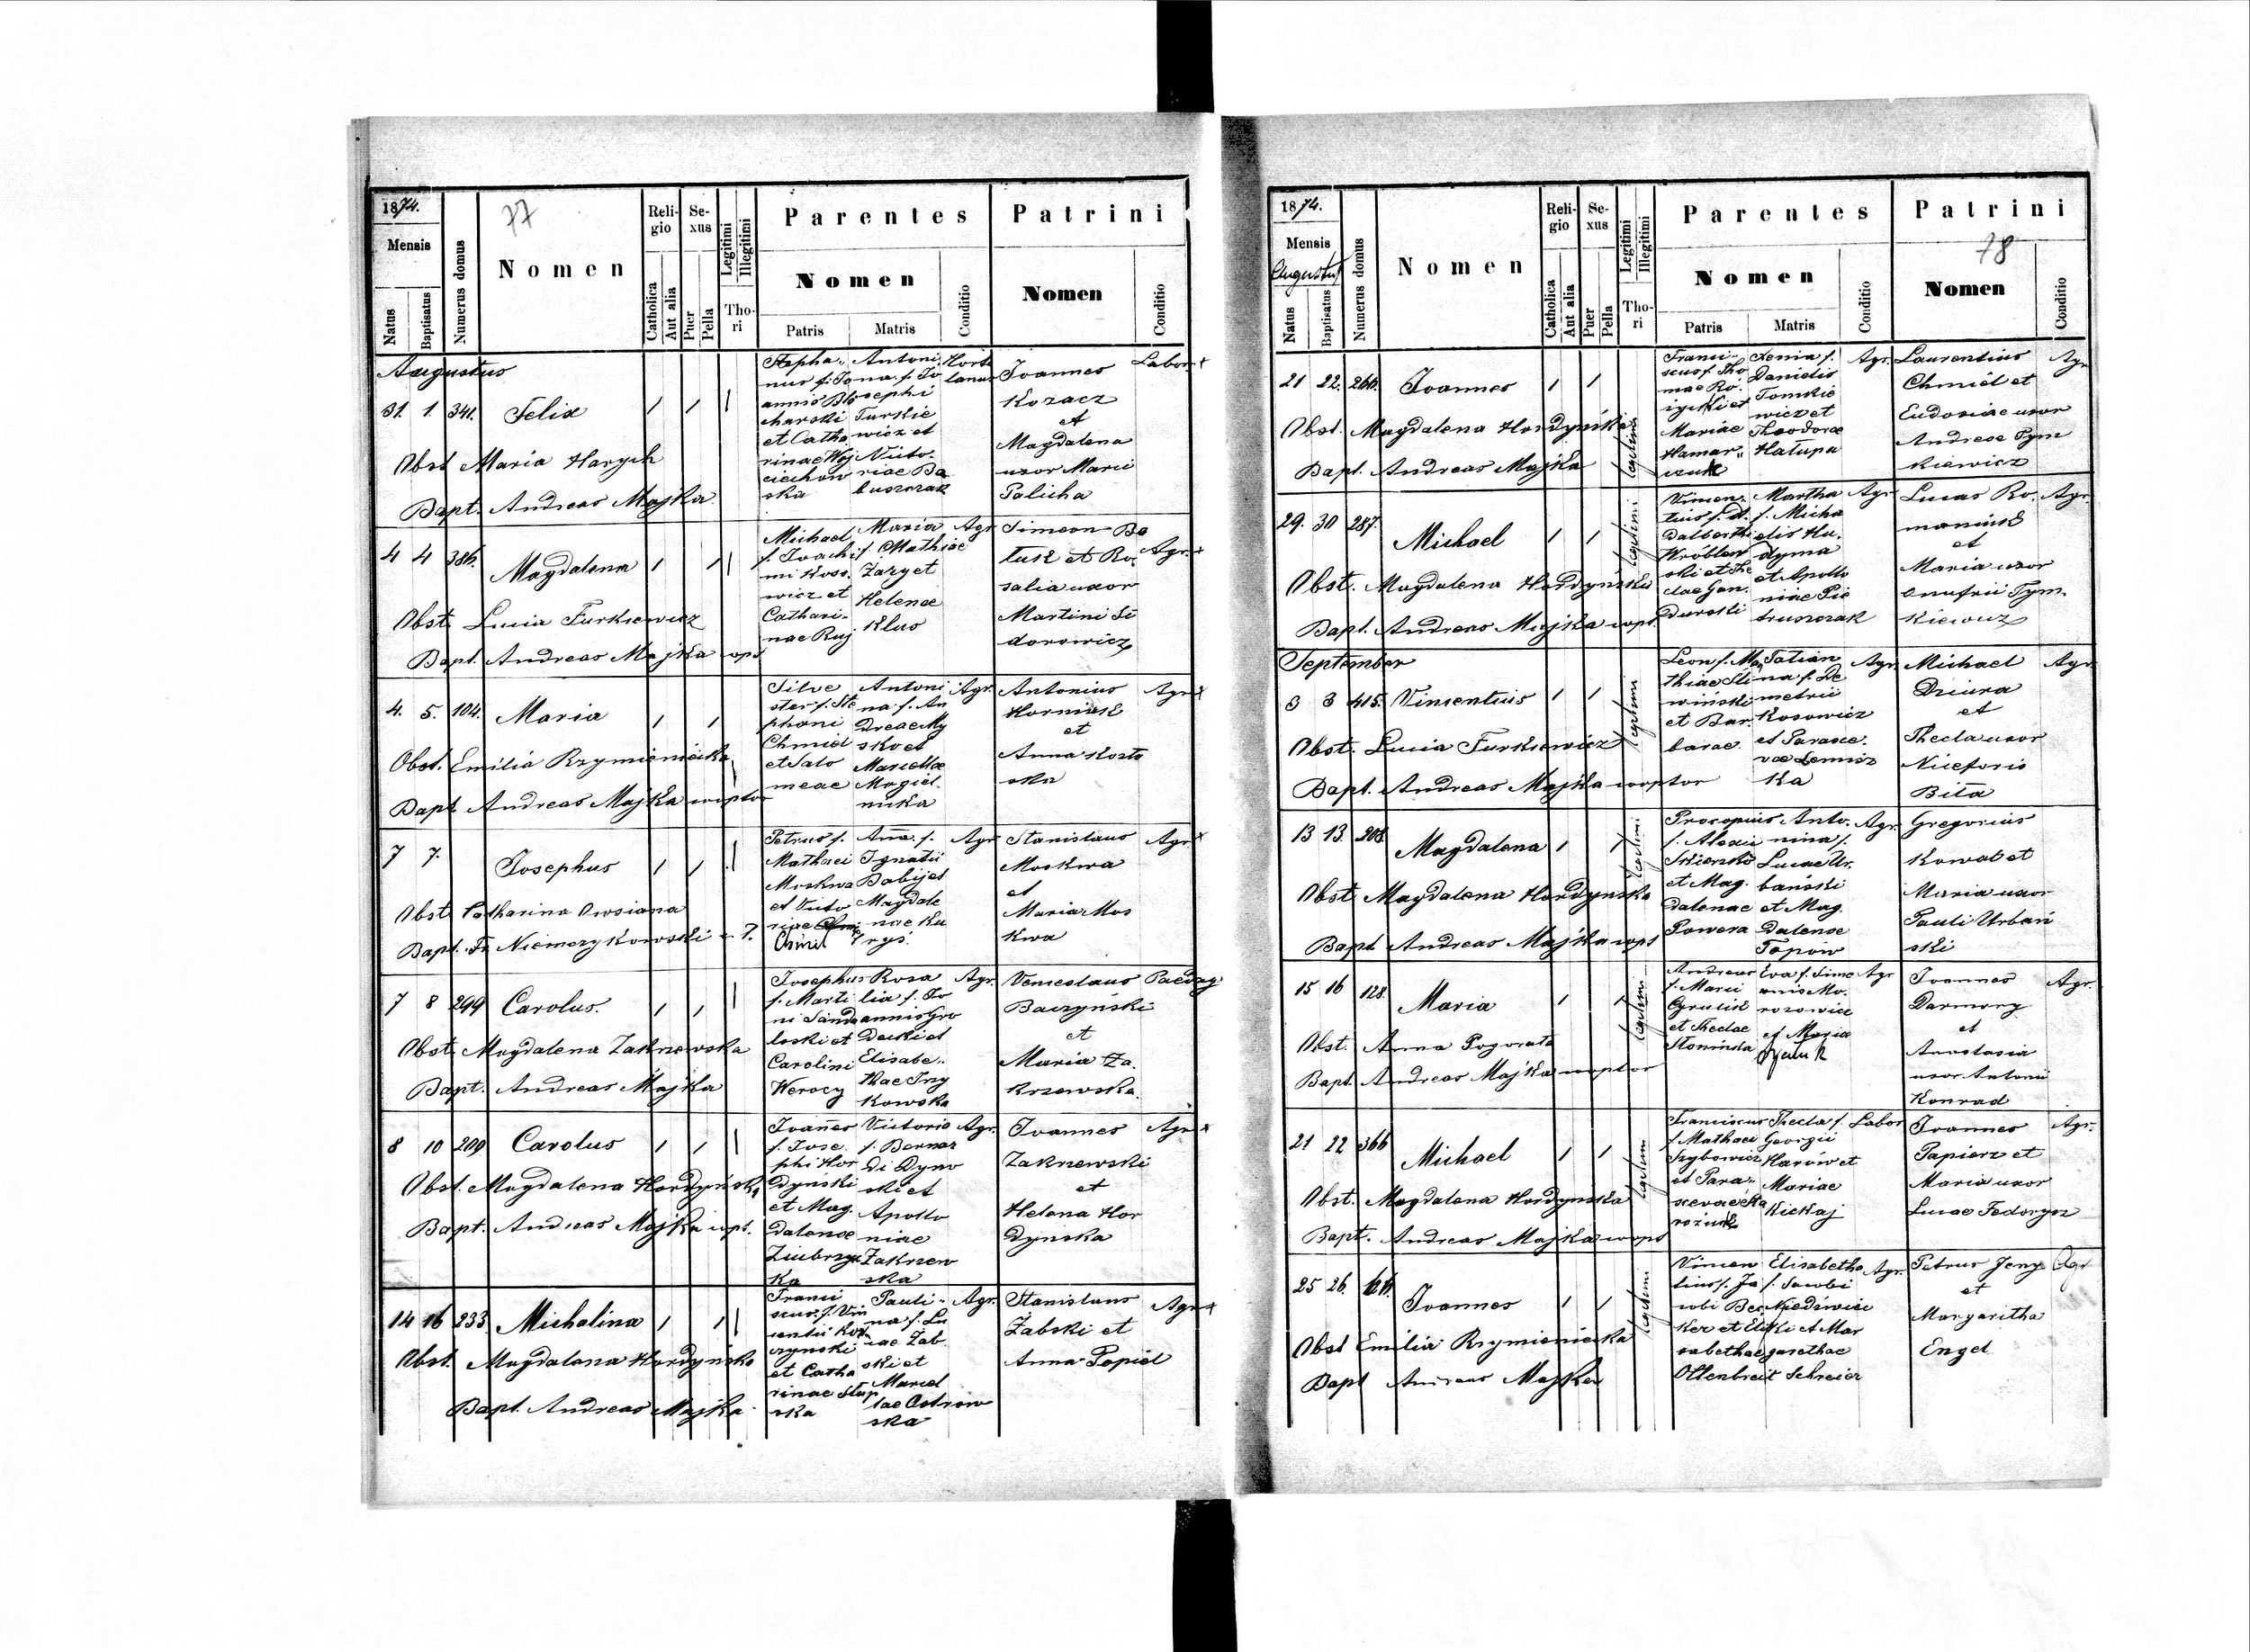 1874.
77
Mensis
Natus
Baptisatus
Numerus domus
Nomen
Religio
Catholica
Aut alia
Sexus
Puer
Pella
Legitimi
Illegitimi
Thori
Parentes
Nomen
Patris
Matris
Conditio
Patrini
Nomen
Conditio
Augustus
31. 1. 341. Felix
Obst Maria Harych
Bapt. Andreas Majka
Stepha-
nus f. Jo
annis Blo
charski
et Catha
rinae Woj
ciechow
ska
Antoni
na f. Jo
sephi
Turkie
wicz et
Victo-
riae Ba
buszczak
Horto
lanus
Joannes
Kozacz
et
Magdalena
uxor Marci
Palicha
Labor
4 4 386. Magdalena
Obst. Lucia Turkiewicz
Bapt. Andreas Majka
Michael
f. Joachi
mi Koss.
wicz et
Cathari-
nae Ruj
Maria
f. Mathiae
Zaryet
Helenae
Klus
Agr
Simeon Ba
tuk et Ro.
salia uxor
Martini Si
dorowicz
Agr.
4. 5. 104. Maria
Obst. Emilia Rzymieniecka
Bapt. Andreas Majka cooptor
Silve
ster f. Ste
phani
Chmiel
et Salo
meae
Antoni
na f. An
dreae My
sko et
Marcellae
Magiel-
nicka
Agr.
Antonius
Horniak
et
Anna Kosto
ska
Agr
7 7. Josephus
Obst Catharina Owsiana
Bapt. Fr Niemczykowski
Petrus f.
Mathaei
Moskwa
et Victo
riae
Chmil
Anna f.
Ignatii
Babij et
Magdale
nae Ku
rys.
Agr
Stanislaus
Moskwa
et
Maria Mos
kwa
Agr
7 8 299 Carolus.
Obst. Magdalena Zakrzewska
Bapt. Andreas Majka
Josephus
f. Marti
ni Sando
loski et
Carolini
Werocy
Rosa
lia f. Jo
annis Gro
decki et
Elisabe-
thae Iny
kowska
Agr.
Venceslaus
Baczyński
et
Maria Za.
krzewska.
Paedag
8 10 209 Carolus
Obst. Magdalena Hordyńska
Bapt. Andreas Majka
Joannes
f. Jose.
phi Hor
dyński
et Mag.
dalenae
Ziubrzyc
ka
Victoria
f. Bernar
di Dyno
ski et
Apollo
niae
Zakrzew
ska
Agr.
Joannes
Zakrzewski
et
Helena Hor
dynska
Agr
14 16 233 Michalina
Obst. Magdalena Hordyńska
Bapt. Andreas Majka
Franci
scus f. Vin
centii Kor
czynski
et Catha
rinae Stup
ska
Pauli-
na f. Lu
cae Żab
ski et
Marcel
lae Ostrow
ska
Agr.
Stanislaus
Żabski et
Anna Popiel
Agr
1874.
Mensis
Augustus
Natus
Baptisatus
Numerus domus
Nomen
Religio
Catholica
Aut alia
Sexus
Puer
Pella
Legitimi
Illegitimi
Thori
Parentes
Nomen
Patris
Matris
Conditio
Patrini
78
Nomen
Conditio
21 22. 260. Joannes
Obst. Magdalena Hordyńska
Bapt. Andreas Majka
legitimi
Franci-
scus f. Tho
mae Ro.
życki et
Mariae
Hamar-
czuk
Xenia f.
Danielis
Tomkie
wicz et
Theodorae
Hałupa
Agr.
Laurentius
Chmiel et
Eudosiae uxor
Andreae Tym
kiewicz
Agr
29. 30 287. Michael
Obst. Magdalena Hordyńska
Bapt. Andreas Majka
legitimi
Vincen-
tius f. A.
dalberti
Wróblew
ski et The
clae Gan.
durski
Martha
f. Micha
elis Hu.
dyma
et Apollo
niae Pie
truszczak
Agr
Lucas Ro.
maniuk
et
Maria uxor
Onufrii Tym.
kiewicz
Agr.
September
3 3 415. Vincentius
Obst. Lucia Turkiewicz
Bapt. Andreas Majka cooptor
legitimi
Leon f. Ma
thiae Sli
wiński
et Bar.
barae
Tatian
na f. De
metrii
Kosowicz
et Parasce.
vae Lennic
ka
Agr
Michael
Dziura
et
Thecla uxor
Niceforis
Bita
Agr
13 13. 208. Magdalena
Obst Magdalena Hordynska
Bapt Andreas Majka
legitimi
Procopius
f. Alexii
Skierzki
et Mag.
dalenae
Powera
Anto.
nina f.
Lucae Ur.
bański
et Mag.
dalenae
Popow
Agr
Gregorius
Kowal et
Maria uxor
Pauli Urbań
ski
15 16 128. Maria
Obst. Anna Pogorata
Bapt. Andreas Majka cooptor
legitimi
Andreas
f. Marci
Cyrulik
et Theclae
Słonińska
Eva f. Sime
onis Mo.
rozowicz
et Maria
Agr
Joannes
Darmorg
et
Anastasia
uxor Antonii
Konrad
Agr.
21 22 366 Michael
Obst. Magdalena Hordynska
Bapt. Andreas Majka
legitimi
Franciscus
f. Mathaei
Szybowicz
et Para-
scevae Ka
rożuk
Thecla f.
Georgii
Harów et
Mariae
Kiekaj
Labor
Joannes
Papierz et
Maria uxor
Lucae Fedorysz
Agr.
25 26. Joannes
Obst Emilia Rzymieniecka
Bapt Andreas Majka
legitimi
Vincen
tius f. Ja
cobi Bec
ker et Eli
sabethae
Ottenbreit
Elisabetha
f. Jacobi
Niedźwiec
ki et Mar
garethae
Schreier
Agr.
Petrus Jeny
et
Margaritha
Engel
Agr